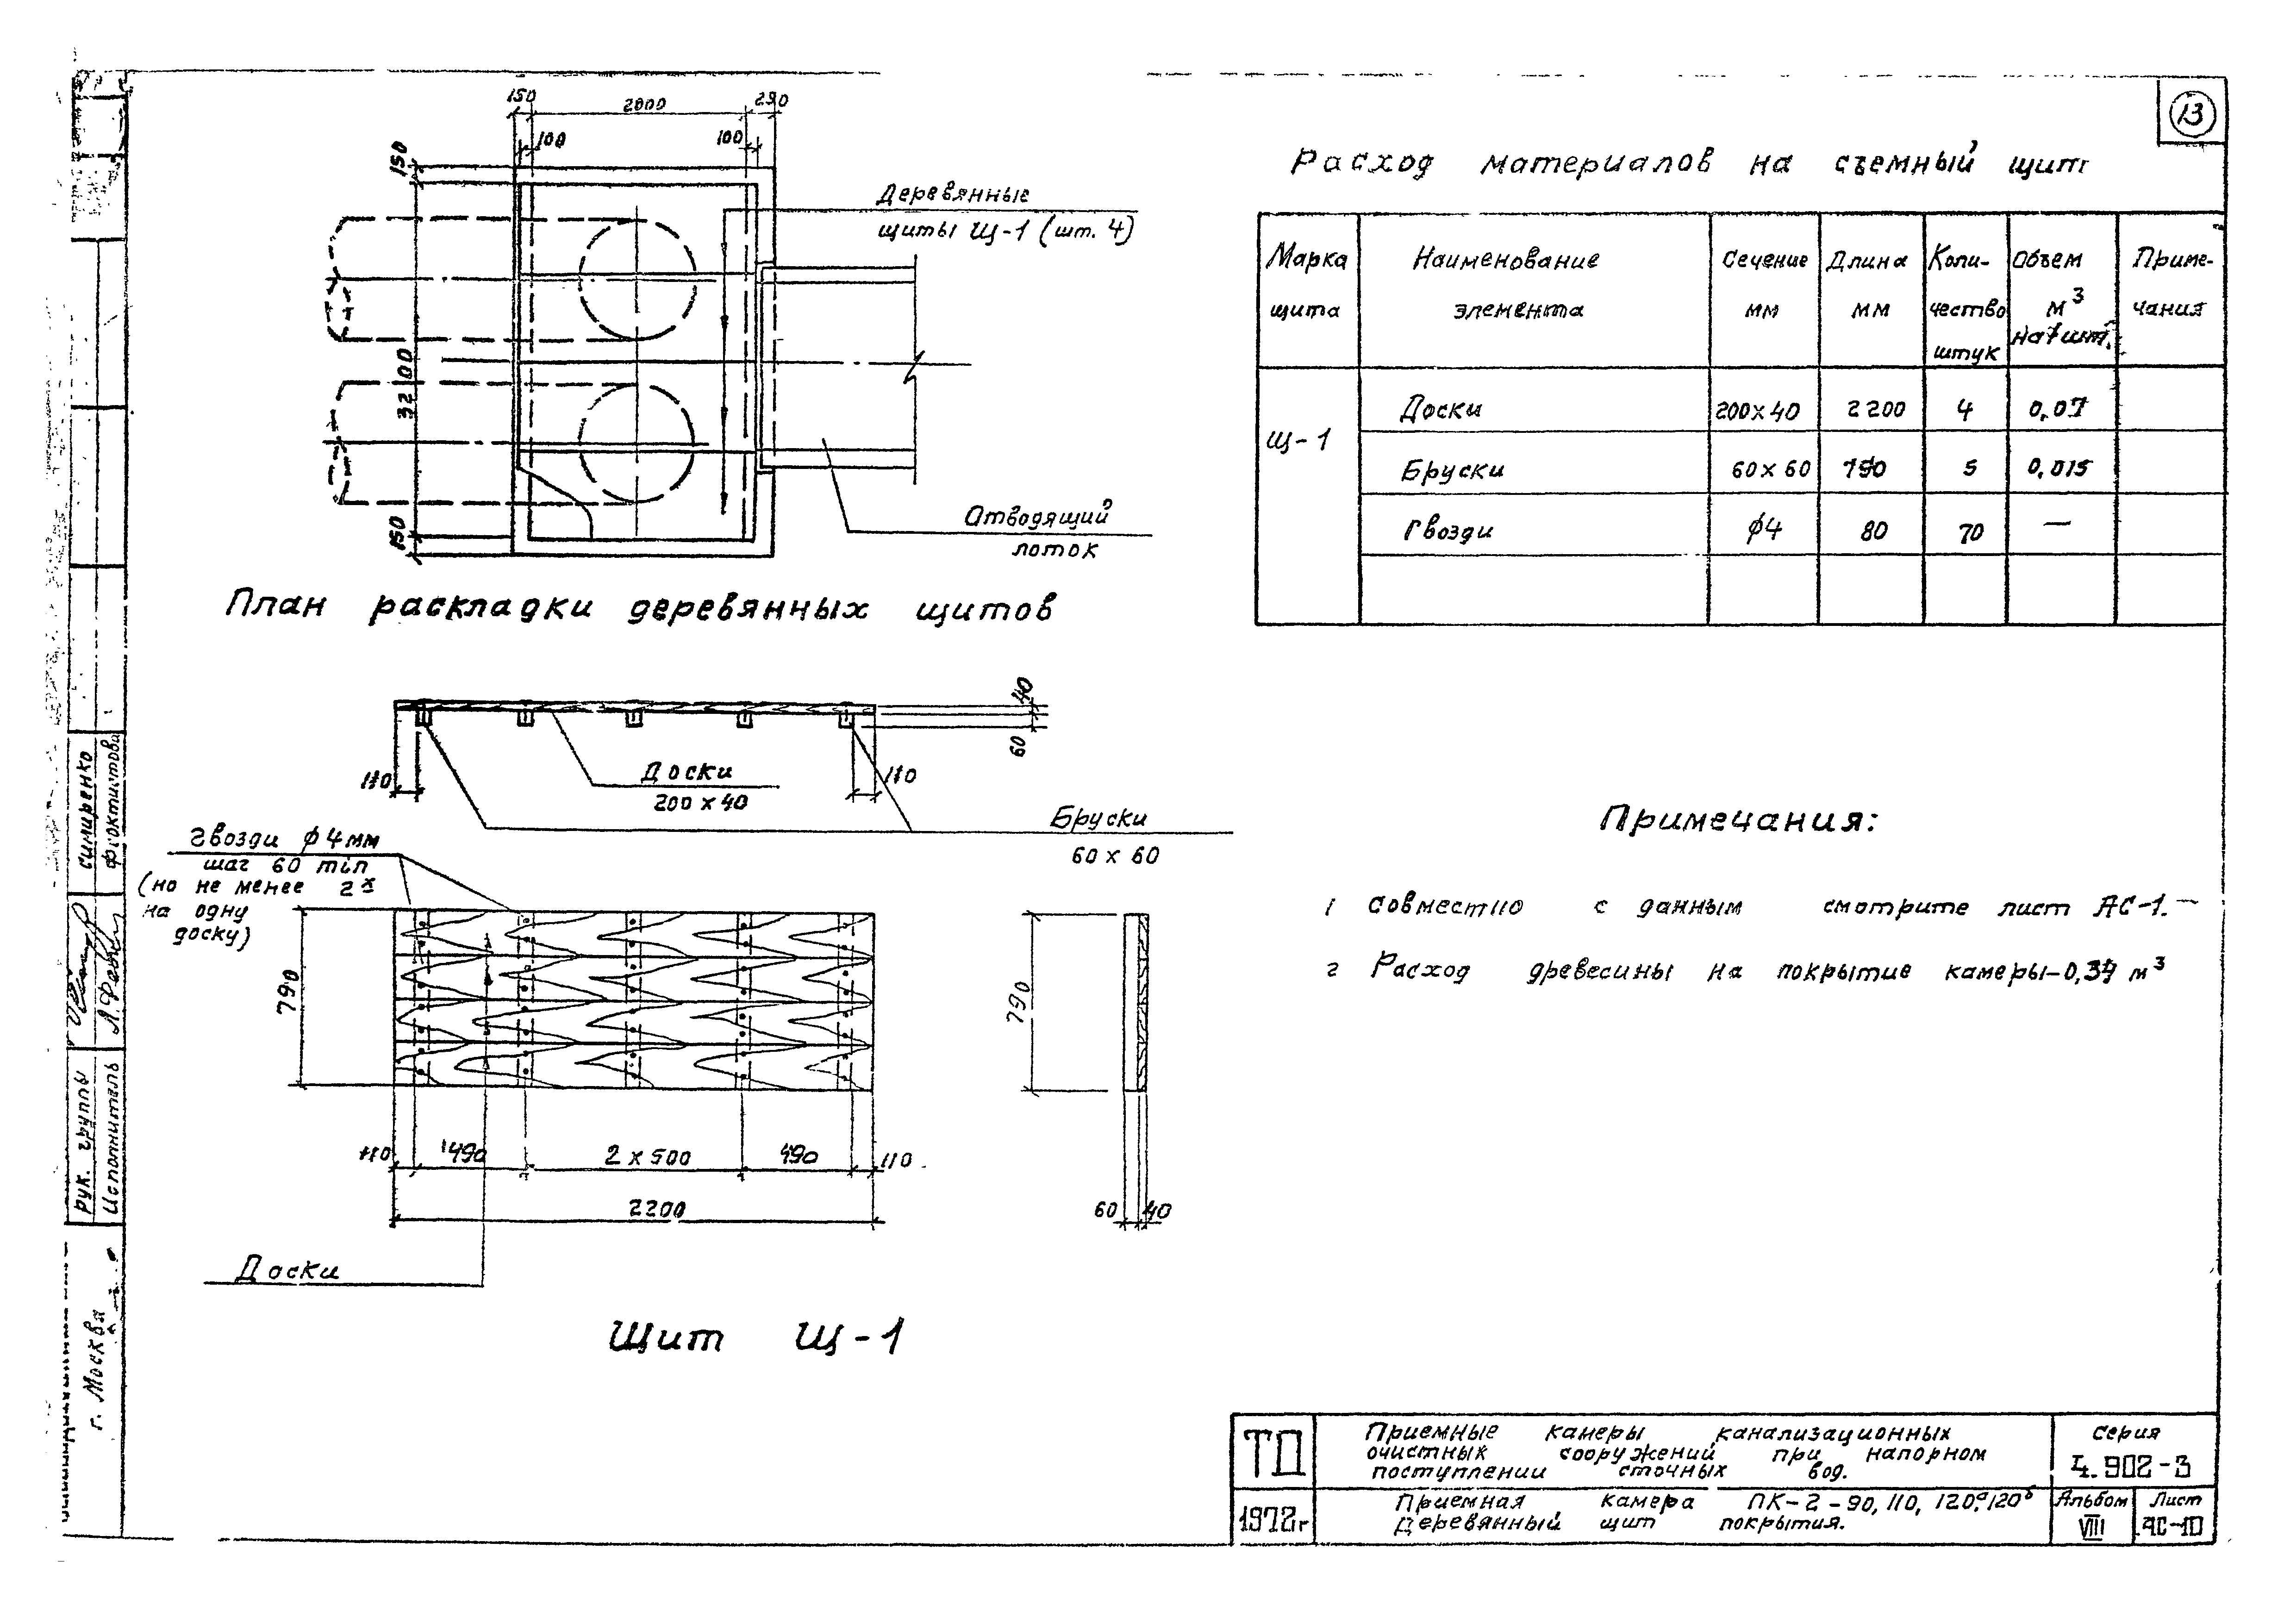 13
150
2000
290
100
100
150
3200
150
Деревянные
щиты Щ-1 (шт. 4)
Отводящий
лоток
План раскладки деревянных щитов
Расход материалов на съемный щит
Марка щита
Наименование элемента
Сечение мм
Длина мм
Коли-чество штук
Объем м³ на 1 шт.
Приме-чания
Щ-1
Доски 200×40 2200 4 0,07
Бруски 60×60 790 5 0,015
Гвозди ϕ4 80 70 —
40
60
110
110
Доски
200×40
Бруски
60×60
гвозди ϕ4мм
шаг 60 min
(но не менее 2х
на одну
доску)
790
790
110
490
2×500
490
110
2200
60
40
Доски
Щит Щ-1
Примечания:
1 Совместно с данным смотрите лист АС-1.
2 Расход древесины на покрытие камеры-0,34 м³
Рук. группы
Исполнитель
Симиренко
г. Москва
ТД
1972г
Приемные камеры канализационных
очистных сооружений при напорном
поступлении сточных вод.
Приемная камера ПК-2-90, 110, 120ᵃ, 120ᵇ
Деревянный щит покрытия.
Серия
4.902-3
Альбом
VIII
Лист
АС-10